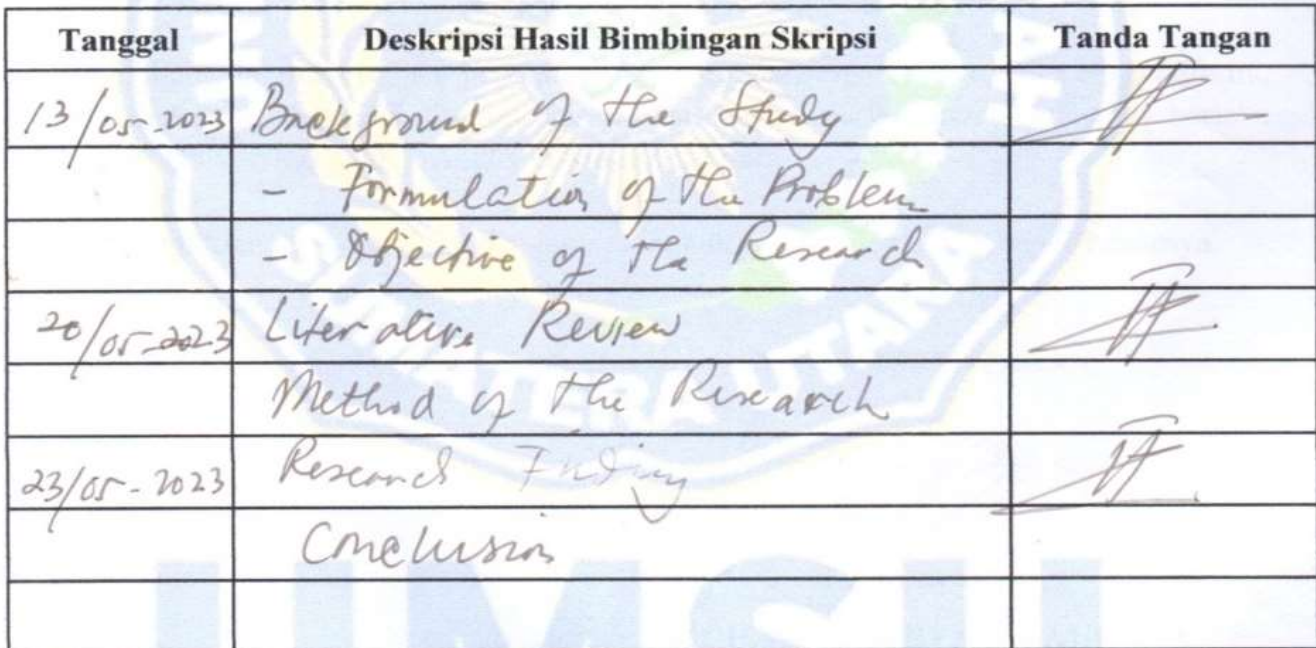 Tanggal Deskripsi Hasil Bimbingan Skripsi Tanda Tangan
13/05-2023 Background of the Study
- Formulation of the Problem
- Objective of the Research
20/05-2023 Literative Review
Method of the Research
23/05-2023 Research Finding
Conclusion
SUMATERA UTARA
UMSU